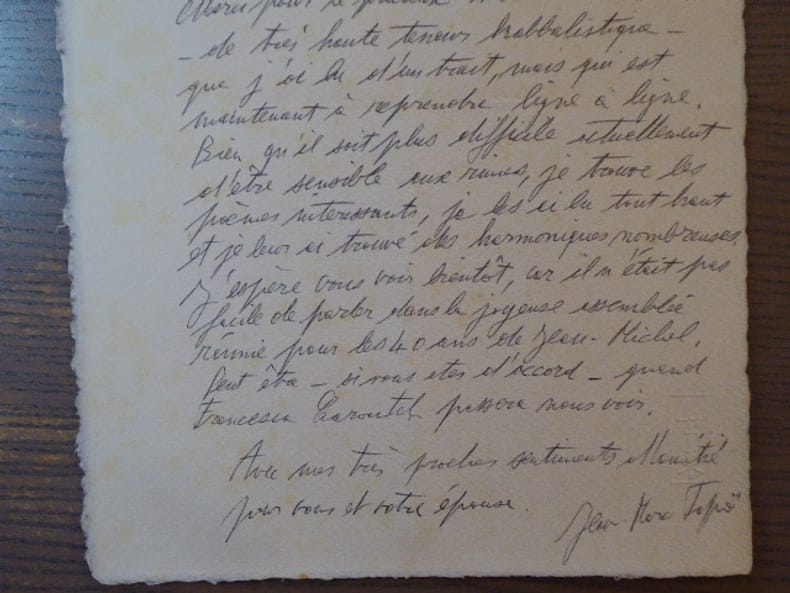 Merci pour ce précieux
- de très haute teneur kabbalistique -
que j'ai lu d'un trait, mais qui est
maintenant à reprendre ligne à ligne.
Bien qu'il soit plus difficile actuellement
d'être sensible aux rimes, je trouve les
poèmes intéressants, je les ai lu tout haut
et je leur ai trouvé des harmoniques nombreuses.
J'espère vous voir bientôt, car il n'était pas
facile de parler dans la joyeuse assemblée
réunie pour les 40 ans de Jean-Michel.
Peut être - si vous etes d'accord - quand
Francesca passera nous voir.
Avec mes très proches sentiments d'amitié
pour vous et votre épouse.
Jean-Marc